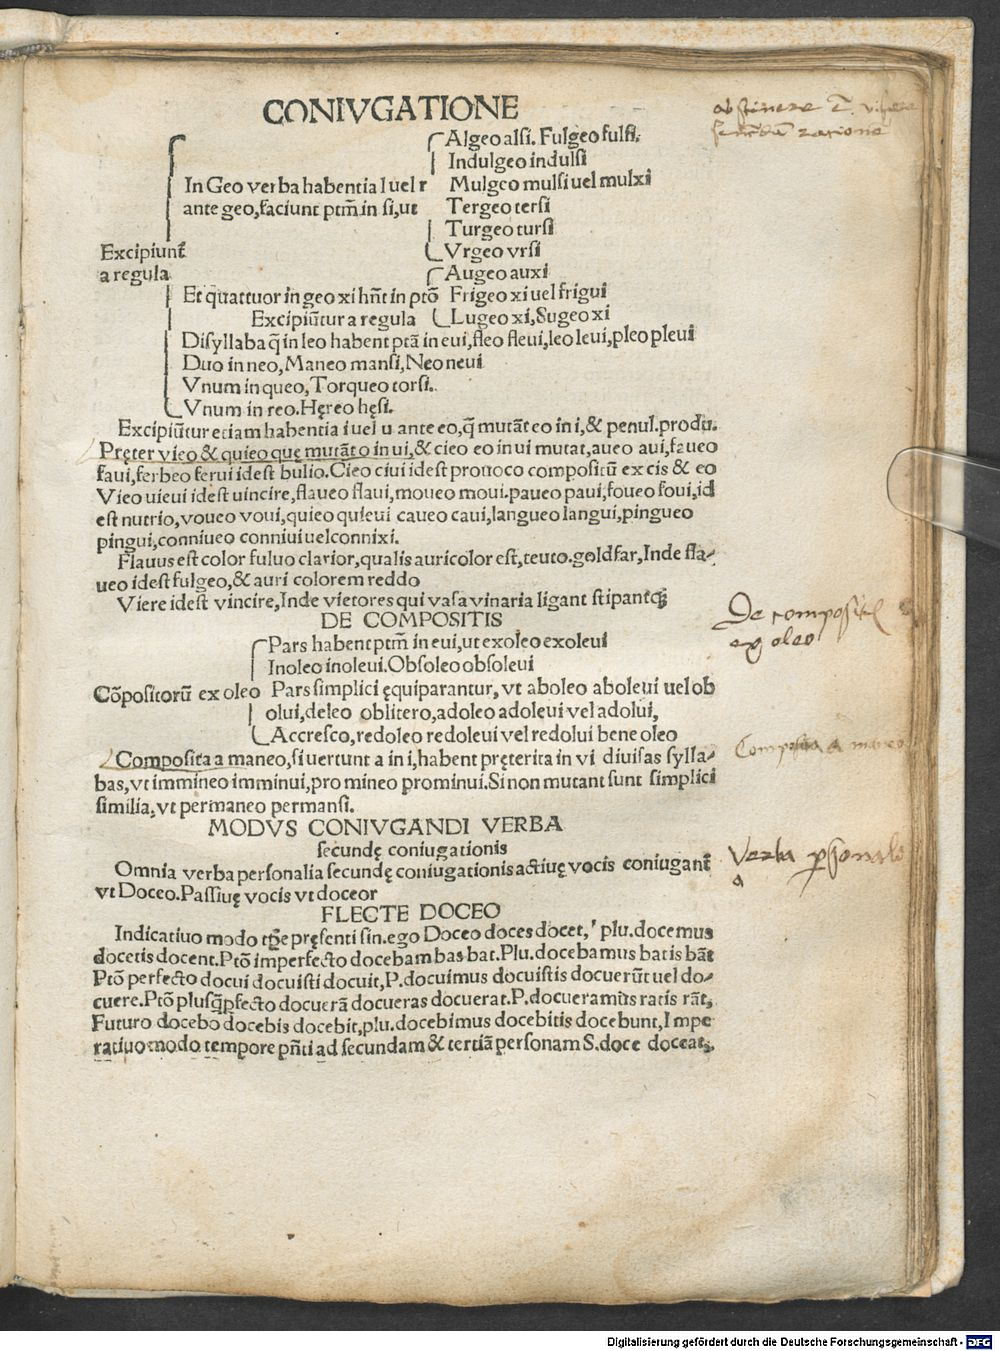 CONIVGATIONE
Algeo alsi. Fulgeo fulsi.
Indulgeo indulsi
In Geo verba habentia l uel r Mulgeo mulsi uel mulxi
ante geo, faciunt ptm̄ in si, ut Tergeo tersi
Turgeo tursi
Excipiunt̄ Vrgeo vrsi
a regula Augeo auxi
Et quattuor in geo xi hn̄t in ptō Frigeo xi uel frigui
Excipiūtur a regula Lugeo xi, Sugeo xi
Disyllaba q̄ in leo habent ptā in eui, fleo fleui, leo leui, pleo pleui
Duo in neo, Maneo mansi, Neo neui
Vnum in queo, Torqueo torsi.
Vnum in reo. Hęreo hęsi.
Excipiūtur etiam habentia i uel u ante eo, q̄ mutāt eo in i, & penul. produ.
Pręter vieo & quieo quę mutāt o in ui, & cieo eo in ui mutat, aueo aui, faueo
faui, ferbeo ferui idest bulio. Cieo ciui idest prouoco compositū ex cis & eo
Vieo uieui idest uincire, flaueo flaui, moueo moui. paueo paui, foueo foui, id
est nutrio, voueo voui, quieo quieui caueo caui, langueo langui, pingueo
pingui, conniueo conniui uel connixi.
Flauus est color fuluo clarior, qualis auri color est, teuto. goldfar, Inde fla-
ueo idest fulgeo, & auri colorem reddo
Viere idest vincire, Inde vietores qui vasa vinaria ligant stipantq;
DE COMPOSITIS
Pars habent ptm̄ in eui, ut exoleo exoleui
Inoleo inoleui. Obsoleo obsoleui
Cōpositorū ex oleo Pars simplici ęquiparantur, vt aboleo aboleui uel ob
olui, deleo oblitero, adoleo adoleui vel adolui,
Accresco, redoleo redoleui vel redolui bene oleo
Composita a maneo, si uertunt a in i, habent pręterita in vi diuisas sylla-
bas, vt immineo imminui, promineo prominui. Si non mutant sunt simplici
similia, vt permaneo permansi.
MODVS CONIVGANDI VERBA
secundę coniugationis
Omnia verba personalia secundę coniugationis actiuę vocis coniugant̄
vt Doceo. Passiuę vocis vt doceor
FLECTE DOCEO
Indicatiuo modo tp̄e pręsenti sin. ego Doceo doces docet, plu. docemus
docetis docent. Ptō imperfecto docebam bas bat. Plu. docebamus batis bāt
Ptō perfecto docui docuisti docuit, P. docuimus docuistis docuerūt uel do-
cuere. Ptō plusq̄pfecto docuerā docueras docuerat. P. docueramus ratis rāt,
Futuro docebo docebis docebit, plu. docebimus docebitis docebunt, Impe
ratiuo modo tempore pn̄ti ad secundam & tertiā personam S. doce doceat,
De composit
ex oleo
Composita a maneo
Verba personal
Digitalisierung gefördert durch die Deutsche Forschungsgemeinschaft - DFG